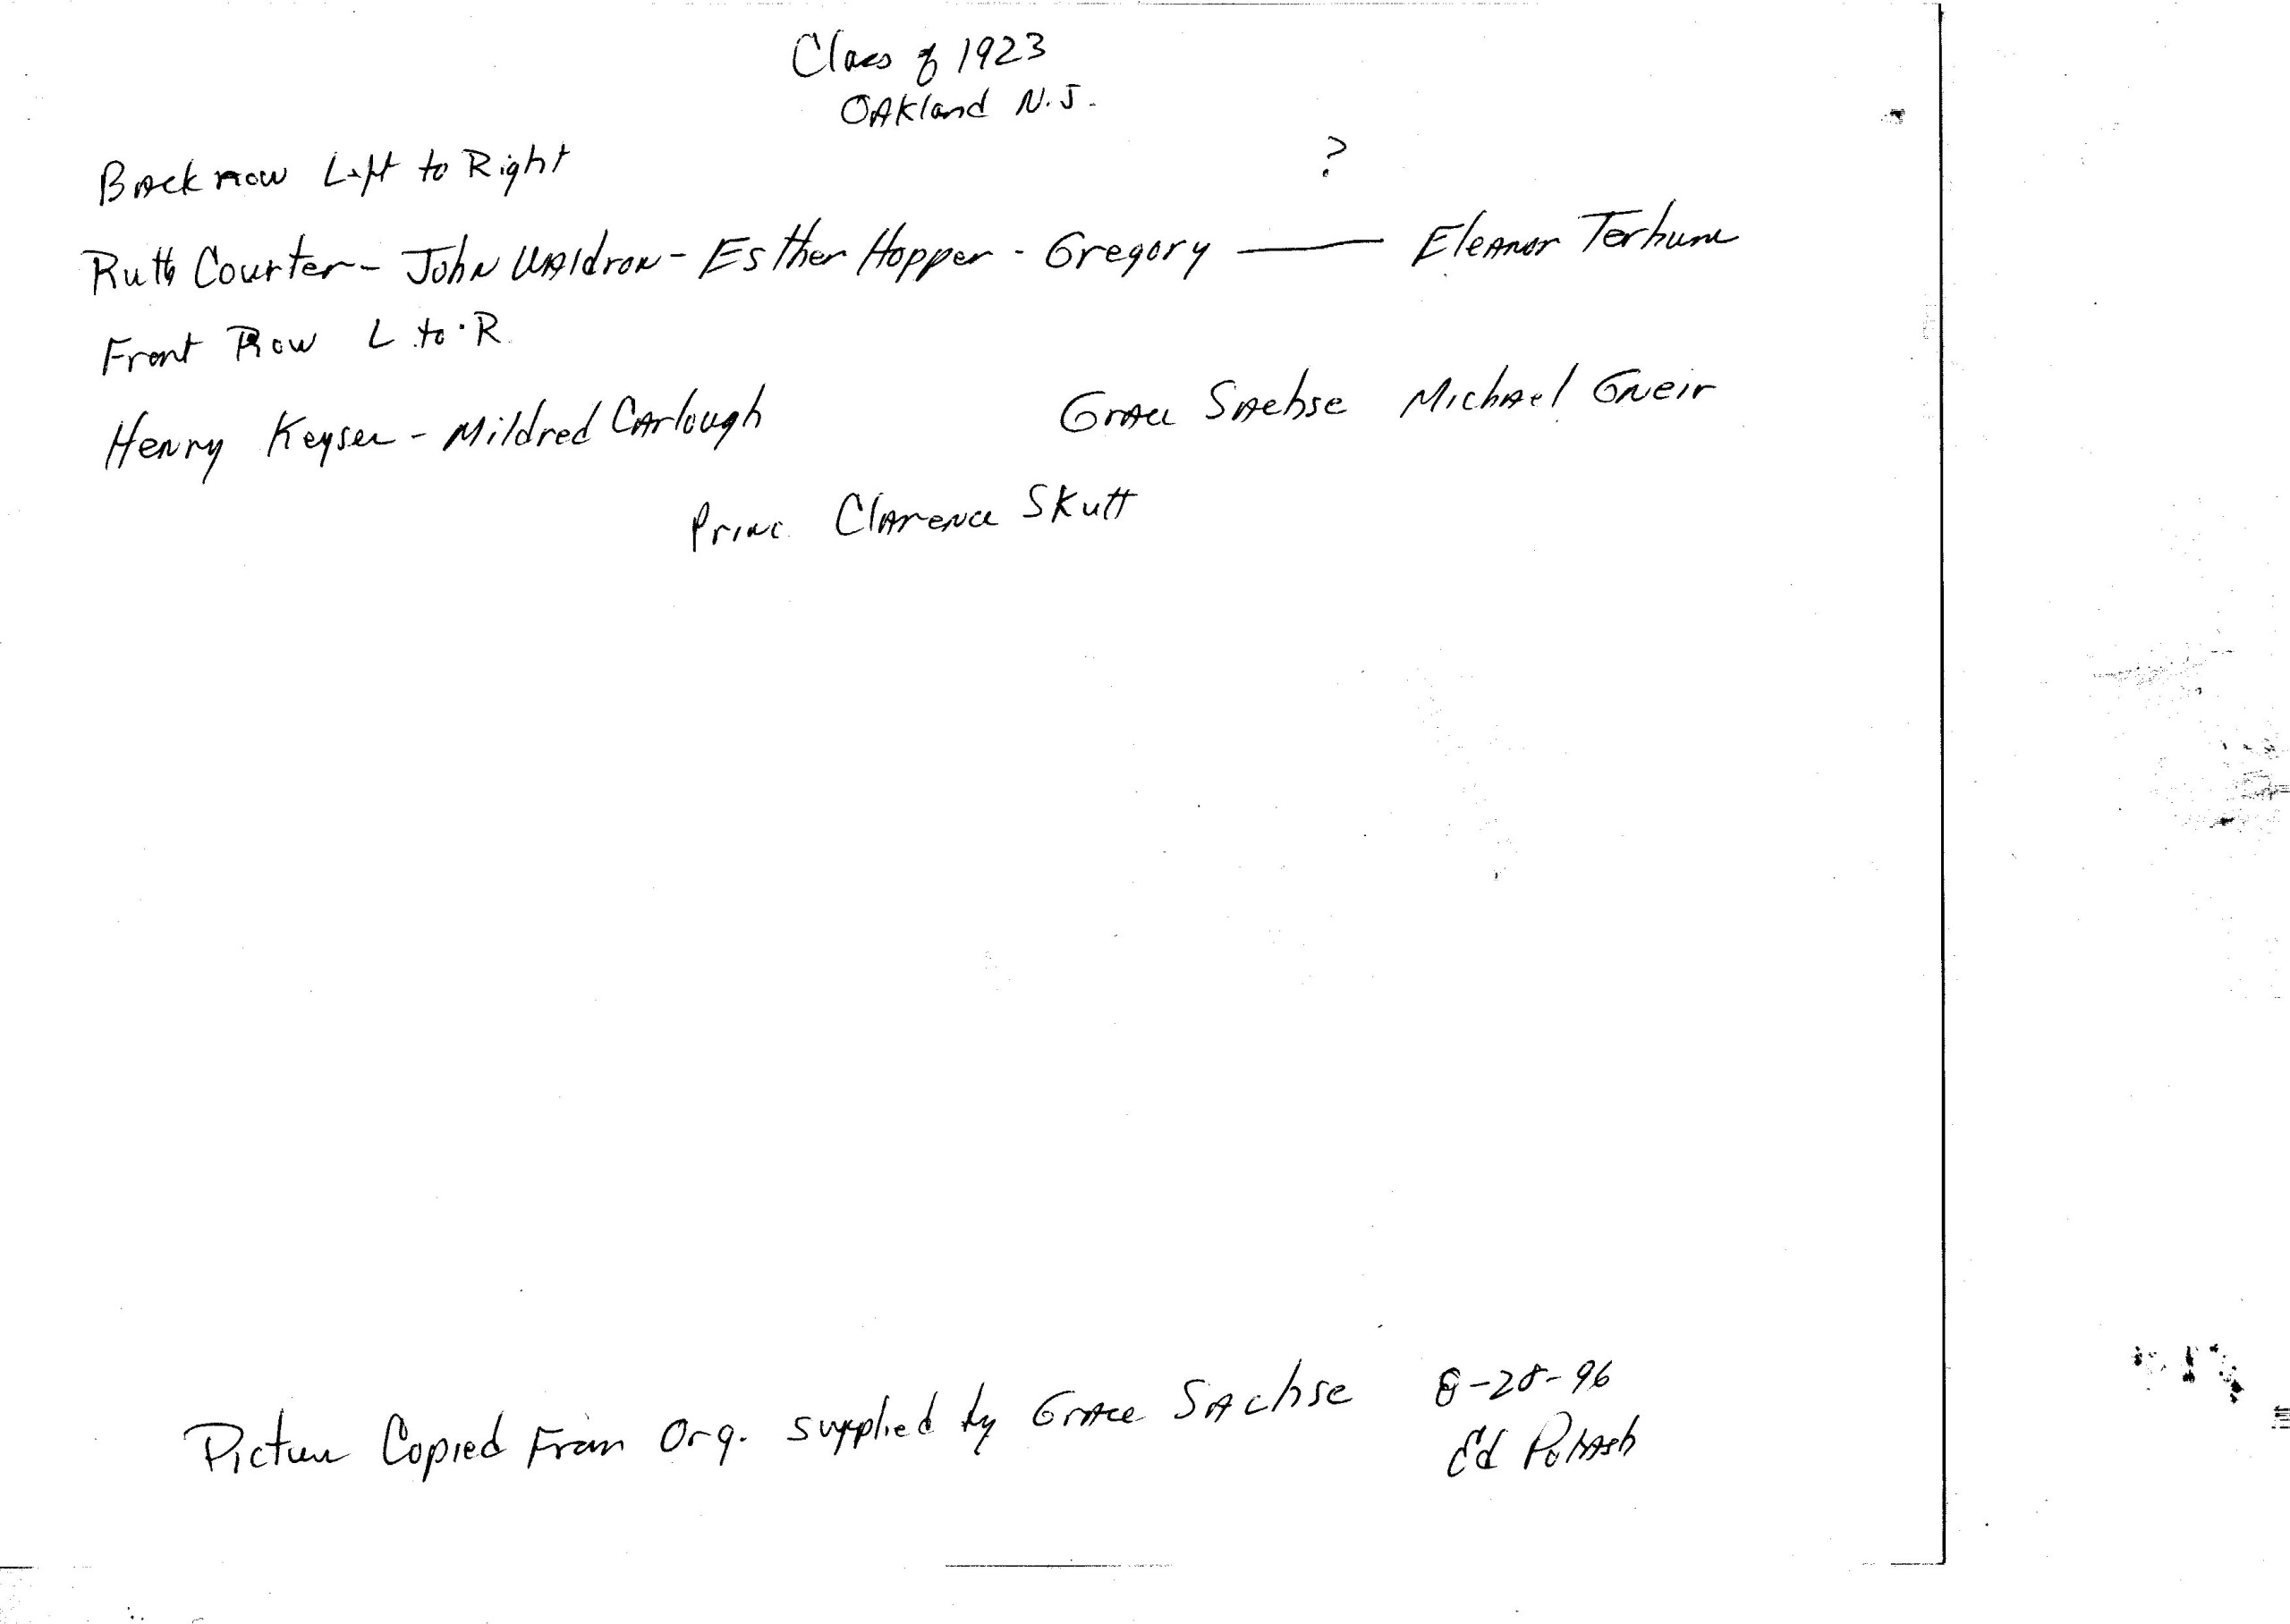 Class of 1923
OAKland N.J.
?
Back row Left to Right
Ruth Courter - John Waldron - Esther Hopper - Gregory —— Eleanor Terhune
Front Row L to R
Henry Keyser - Mildred Carlough Grace Sachse Michael Gneir
Princ. Clarence Skutt
Picture Copied From Org. supplied by Grace Sachse 8-28-96
Ed